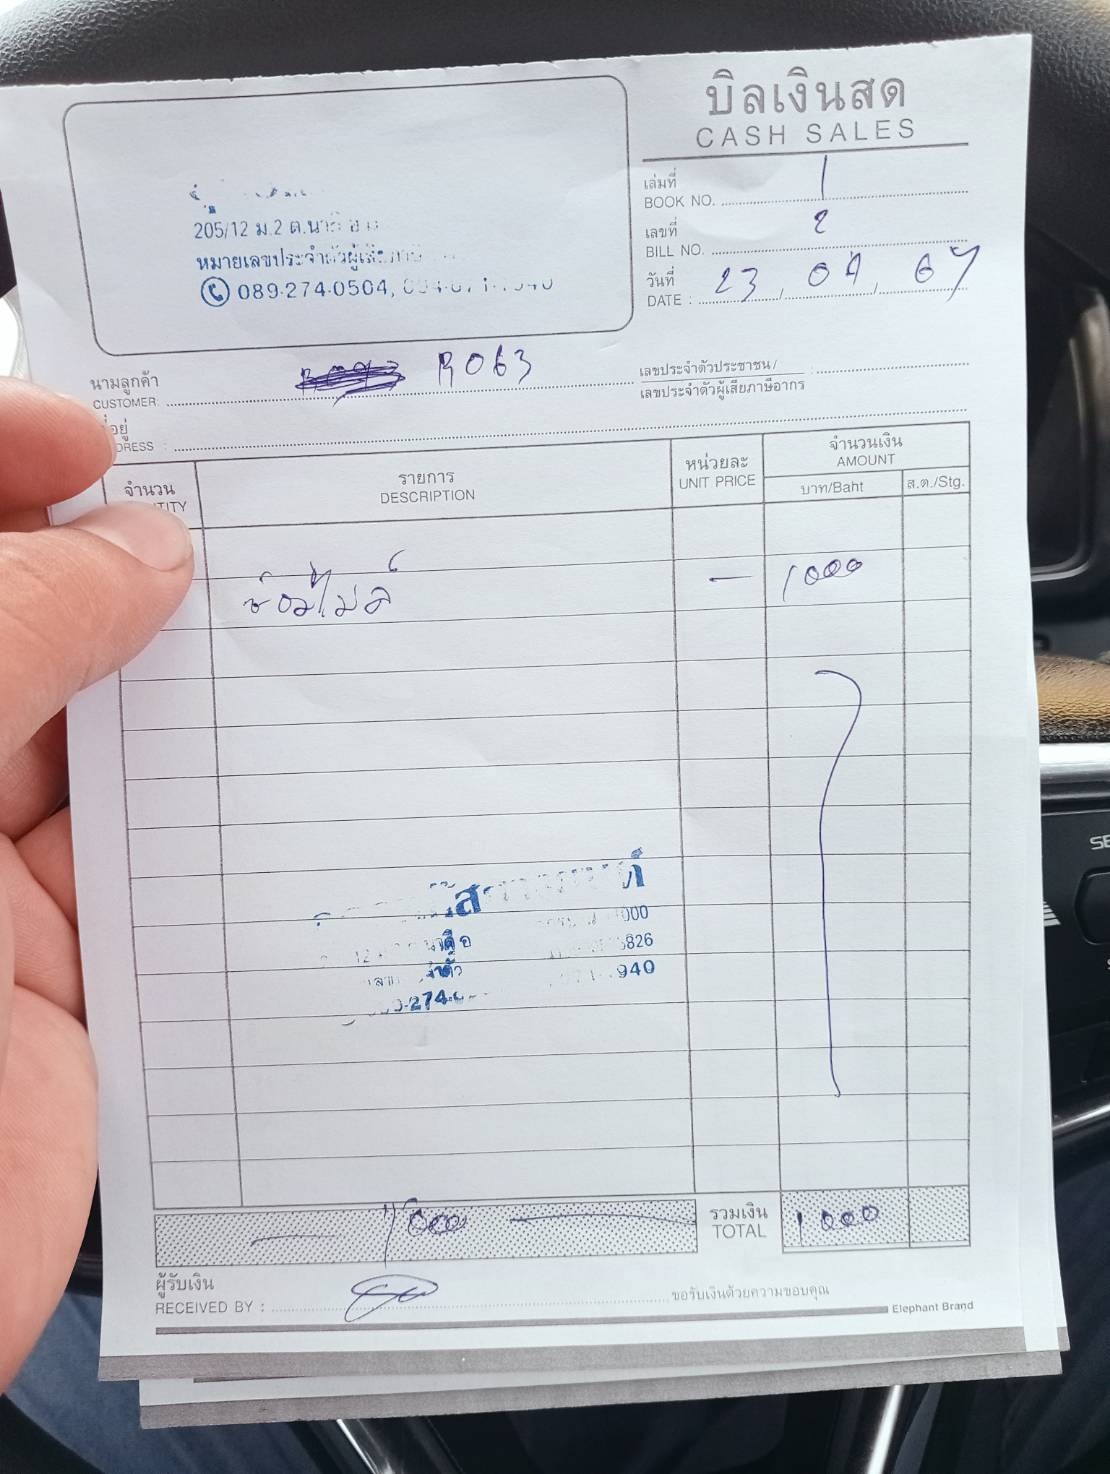 บิลเงินสด
CASH SALES
เล่มที่
BOOK NO. 1
เลขที่
BILL NO. 2
วันที่
DATE : 23 / 04 / 67
205/12 ม.2 ต.นา
หมายเลขประจำตัวผู้เสียภาษี
089-274-0504,
นามลูกค้า
CUSTOMER: R063
เลขประจำตัวประชาชน/
เลขประจำตัวผู้เสียภาษีอากร :
ที่อยู่
ADDRESS :
จำนวน รายการ หน่วยละ จำนวนเงิน
QUANTITY DESCRIPTION UNIT PRICE AMOUNT
บาท/Baht ส.ต./Stg.
— 1000
000
826
940
1000
รวมเงิน
TOTAL 1000
ผู้รับเงิน
RECEIVED BY :
ขอรับเงินด้วยความขอบคุณ
Elephant Brand
SE